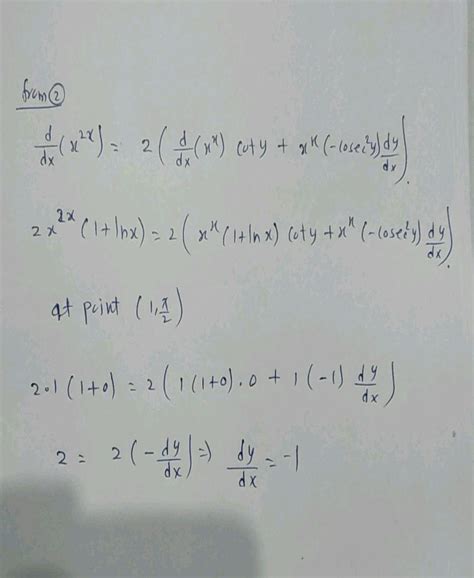 from ②
d/dx (x^2x) = 2( d/dx (x^x) coty + x^x (-cosec²y) dy/dx )
2x^2x (1+lnx) = 2( x^x (1+lnx) coty + x^x (-cosec²y) dy/dx )
at point (1, π/2)
2·1 (1+0) = 2( 1(1+0)·0 + 1(-1) dy/dx )
2 = 2(-dy/dx) ⇒ dy/dx = -1